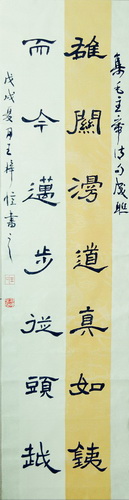 集毛主席诗句成联
雄關漫道真如銕
而今邁步從頭越
戊戌夏月王梓書之